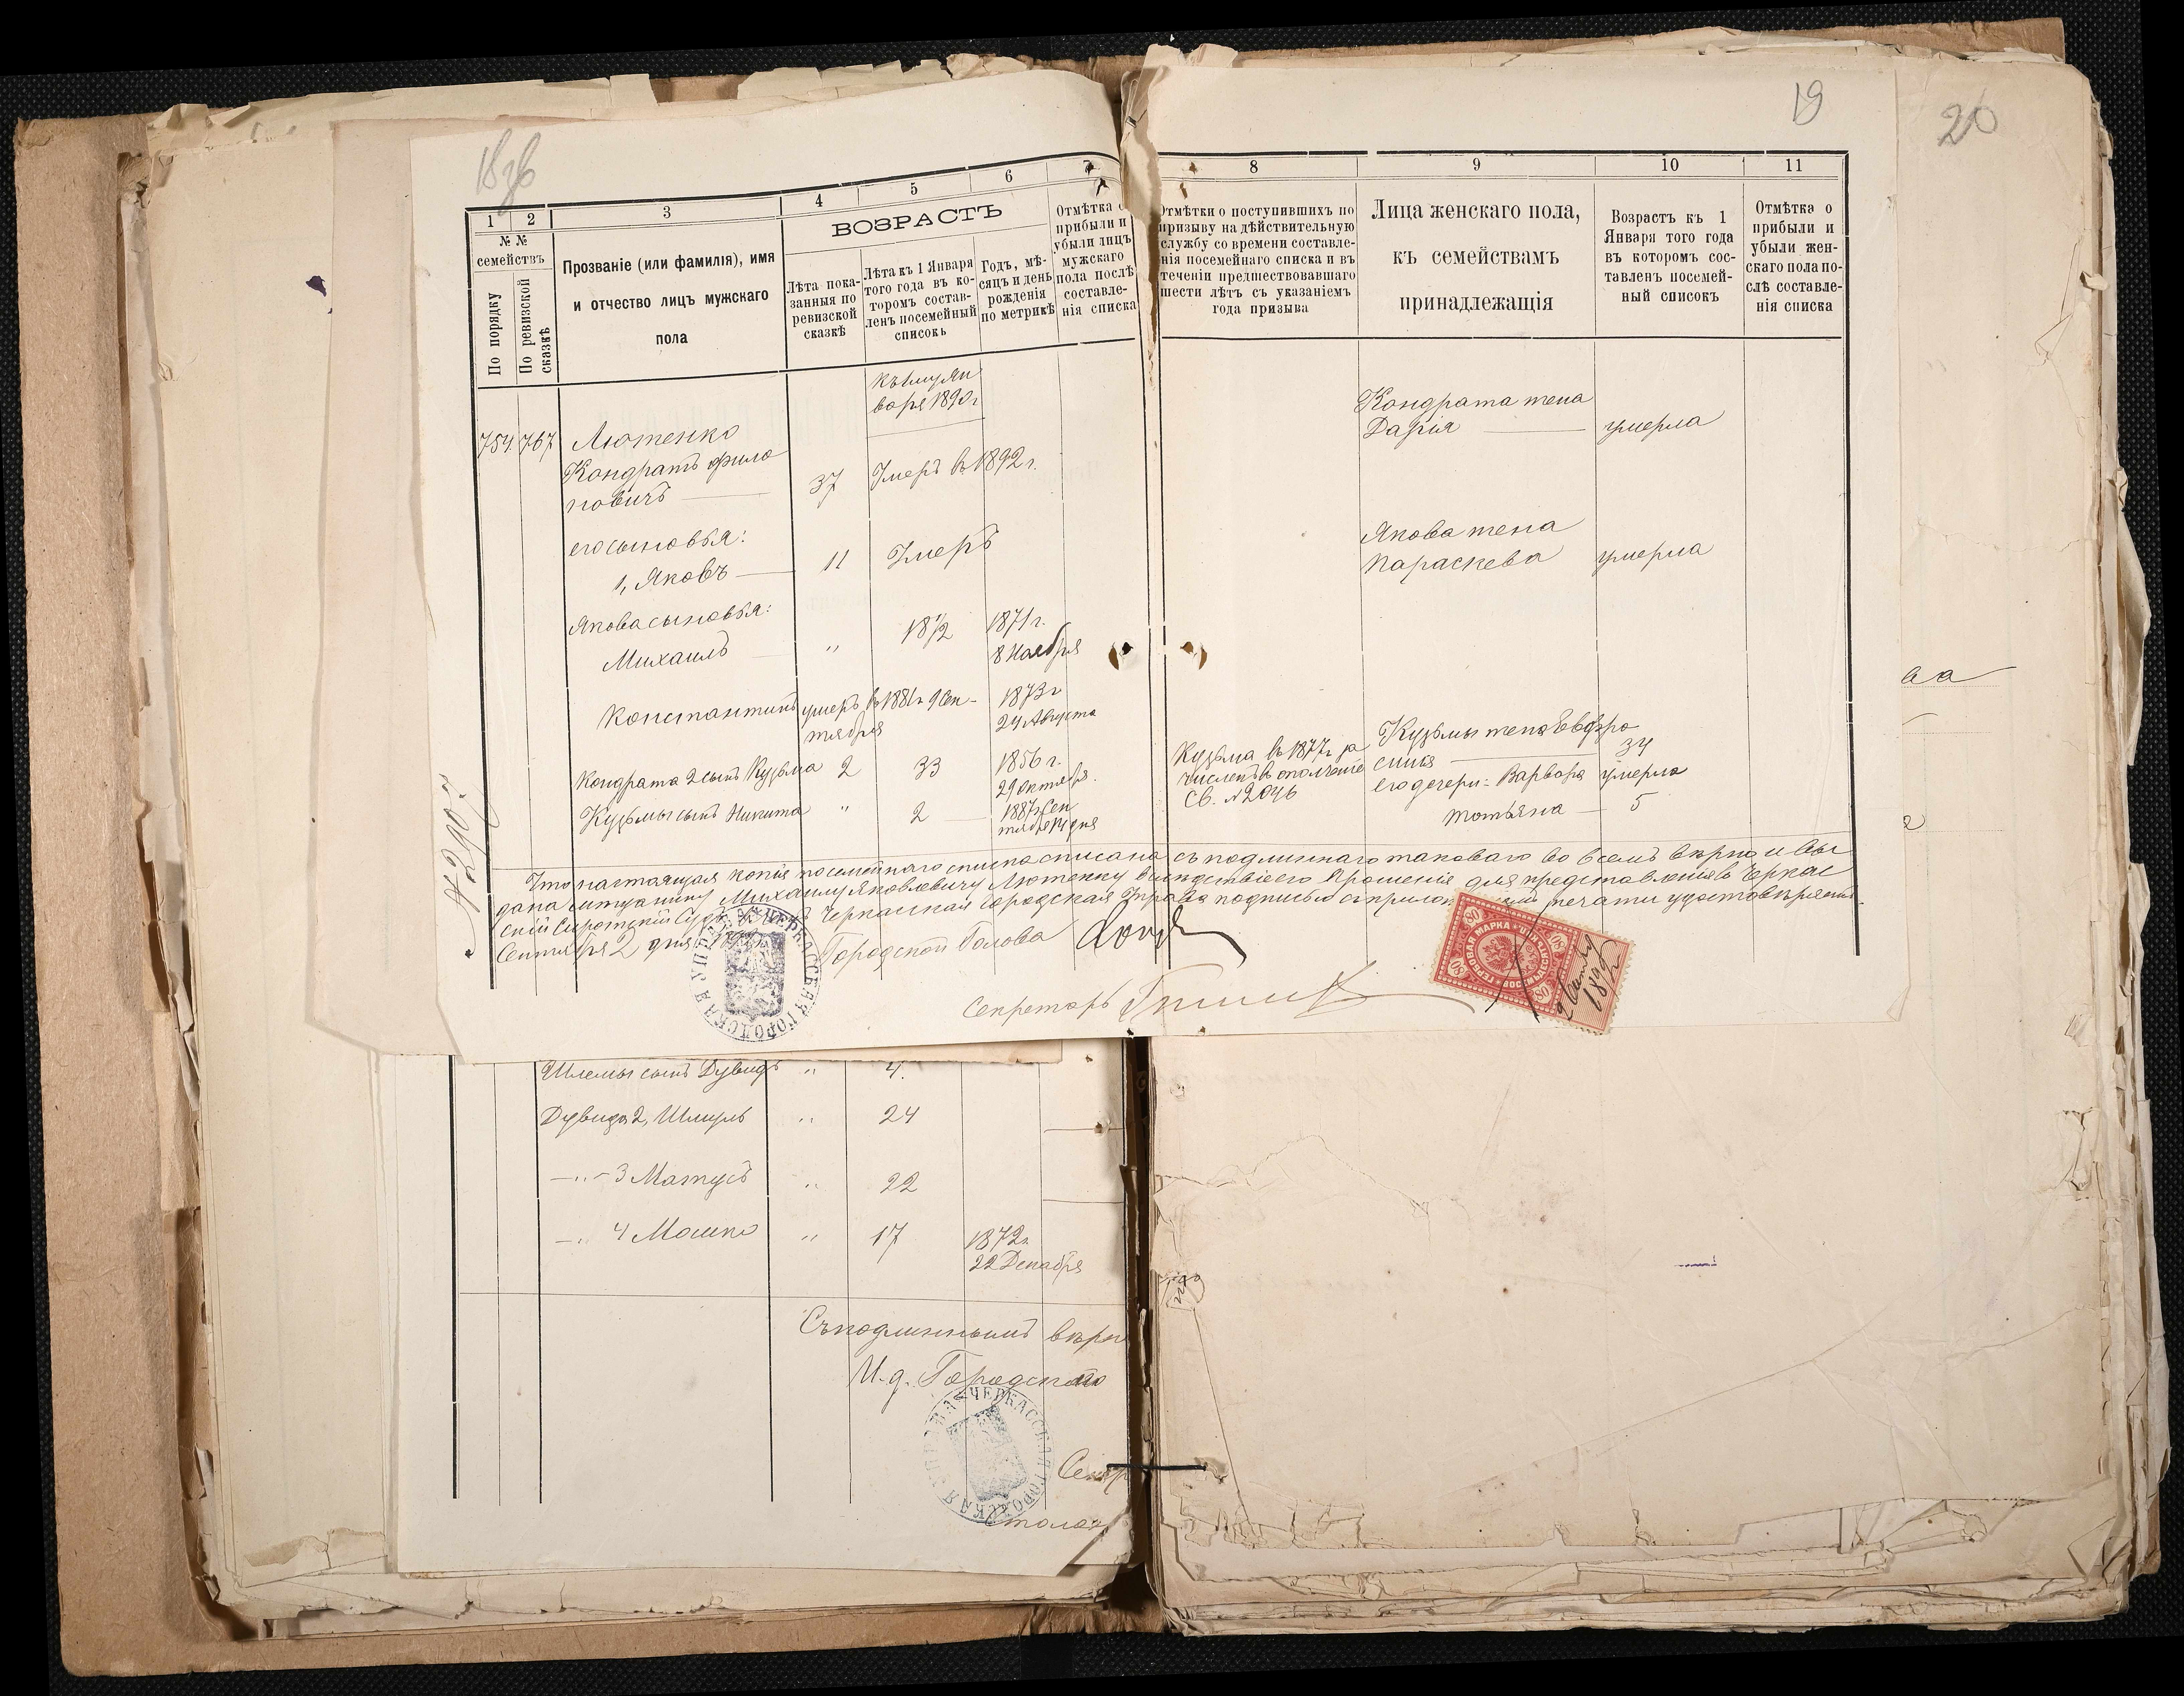 19
20
1 2 3 4 5 6 7 8 9 10 11
№ №
семействъ
По порядку
По ревизской
сказкѣ
Прозваніе (или фамилія), имя
и отчество лицъ мужскаго
пола
ВОЗРАСТЪ
Лѣта пока-
занныя по
ревизской
сказкѣ
Лѣта къ 1 Января
того года въ ко-
торомъ состав-
ленъ посемейный
списокъ
Годъ, мѣ-
сяцъ и день
рожденія
по метрикѣ
Отмѣтка о
прибыли и
убыли лицъ
мужскаго
пола послѣ
составле-
нія списка
Отмѣтки о поступившихъ по
призыву на дѣйствительную
службу со времени составле-
нія посемейнаго списка и въ
теченіи предшествовавшаго
шести лѣтъ съ указаніемъ
года призыва
Лица женскаго пола,
къ семействамъ
принадлежащія
Возрастъ къ 1
Января того года
въ котором сос-
тавленъ посемей-
ный списокъ
Отмѣтка о
прибыли и
убыли жен-
скаго пола по-
слѣ составле-
нія списка
къ 1му Ян
варя 1890 г
754 767 Лютенко
Кондратъ Фило
новичъ 37 Умеръ въ 1892 г.
Кондрата жена
Дарія умерла
его сыновья:
1, Яковъ 11 Умеръ
Якова жена
Параскева умерла
Якова сыновья:
Михаилъ " 18 1/2 1871 г.
8 Ноября
Константинъ умеръ въ 1881 г 9 Сен-
тября
1873 г
24 Августа
Кондрата 2 сынъ Кузьма 2 33 1856 г.
29 октября.
Кузьма въ 1877 г за
численъ в ополченіе
Св. № 2046
Кузьмы жена Евфро
синія 34
его дочери: Варвара умерла
Татьяна 5
Кузьмы сынъ Никита " 2 1887 г Сен
тября 14 дня
№ 2907
Что настоящая копія посемейнаго списка списана съ подлиннаго таковаго во всемъ вѣрно и вы
дана мѣщанину Михаилу Яковлевичу Лютенку вслѣдствіе его прошенія для представленія въ Черкас
скій Сиротскій Судъ Черкасская Городская Управа подписью съ прилож печати удостовѣряетъ.
Сентября 2 дня
Городской Голова
Секретарь
ЧЕРКАССКАЯ ГОРОДСКАЯ УПРАВА
ГЕРБОВАЯ МАРКА
80 80 80
2 Сент
Шлемы сынъ Дувидъ " 4.
Дувида 2, Шмуль " 24
-"- 3 Матусъ " 22
-" 4 Мошко " 17 1872 г.
22 Декабря
Съ подлиннымъ вѣрн
И. д. Городского
ЧЕРКАССКАЯ ГОРОДСКАЯ УПРАВА
Секр
Столон